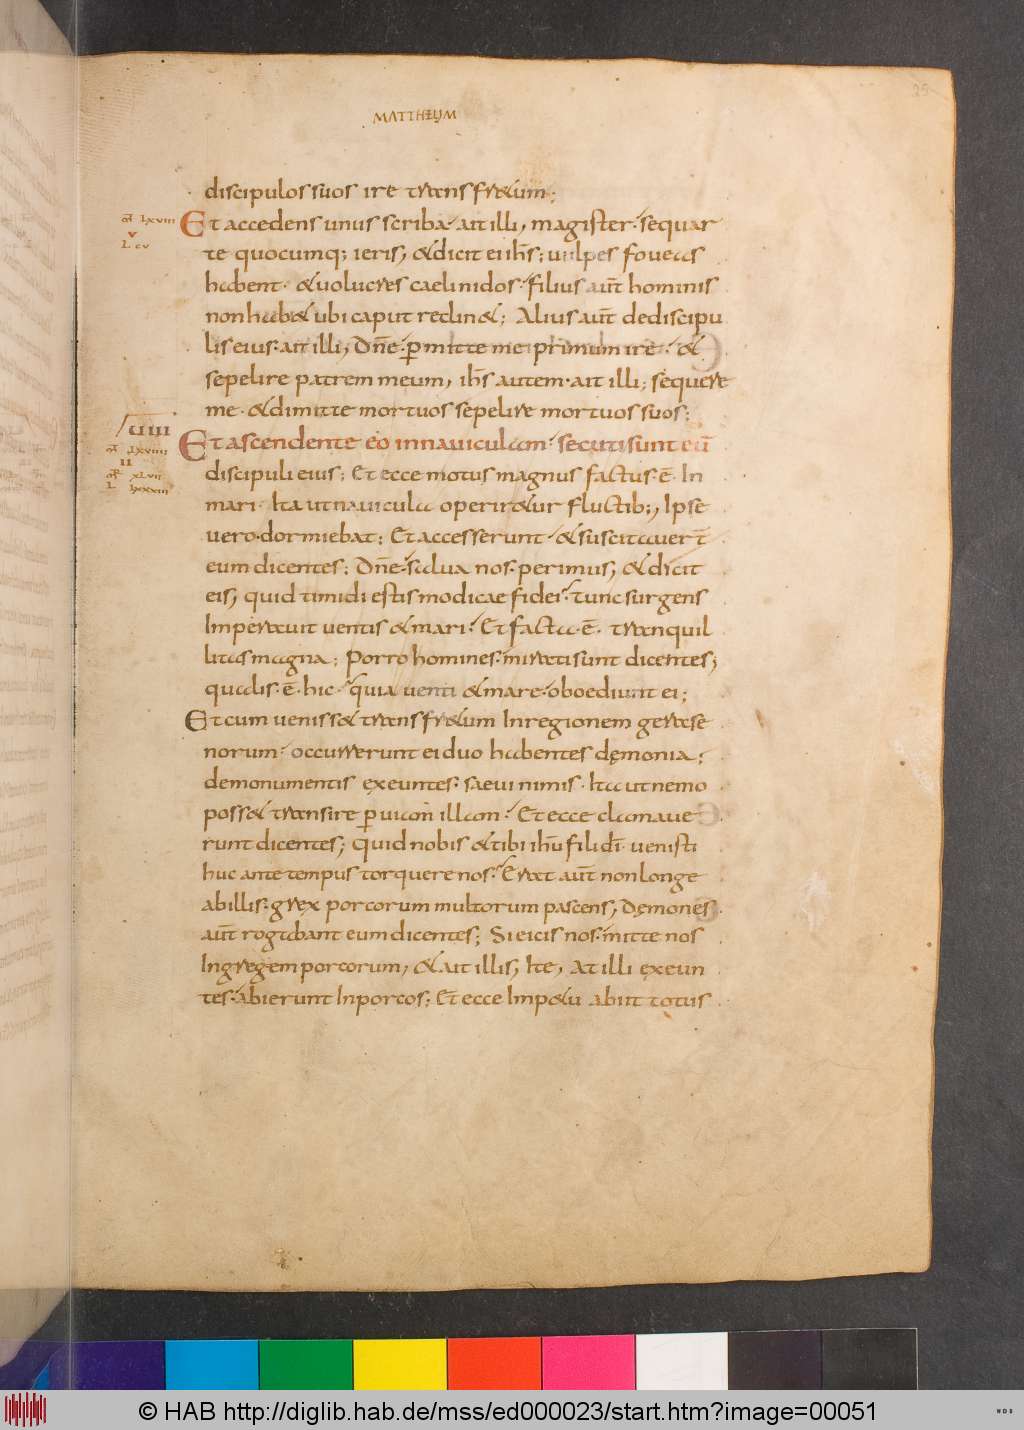 25
MATTHEUM
discipulos suos ire trans fretum;
Et accedens unus scriba · ait illi, magister · sequar
te quocumq; ieris, & dicit ei ihs̄; uulpes foueas
habent · & uolucres caeli nidos · filius aūt hominis
non hab& ubi caput reclin&; Alius aūt de discipu
lis eius · ait illi, Dn̄e · ꝑmitte me primum ire · &
sepelire patrem meum, ihs̄ autem · ait illi; sequere
me · & dimitte mortuos sepelire mortuos suos;
Et ascendente eo in nauiculam · secuti sunt eū
discipuli eius; Et ecce motus magnus factus · ē · In
mari · Ita ut nauicula operir&ur fluctib;, Ipse
uero · dormiebat; Et accesserunt · & suscitauer̄
eum dicentes; Dn̄e · salua nos · perimus, & dicit
eis, quid timidi estis modicae fidei · tunc surgens
Imperauit uentis & mari · Et facta · ē · tranquil
litas magna; Porro homines · mirati sunt dicentes;
qualis · ē · hic · quia uenti & mare · oboediunt ei;
Et cum ueniss& trans fr&um In regionem gerase
norum · occurrerunt ei duo habentes dęmonia;
de monumentis exeuntes · saeui nimis · Ita ut nemo
poss& transire ꝑ uiam illam · Et ecce clamaue
runt dicentes; quid nobis & tibi ihū fili dī · uenisti
huc ante tempus torquere nos · Erat aūt non longe
ab illis · grex porcorum multorum pascens, Dęmones
aūt rogabant eum dicentes; Si eicis nos · mitte nos
In gregem porcorum, & ait illis, Ite, At illi exeun
tes · abierunt In porcos; Et ecce Imp&u abiit totus
LXVIII
V
L CV
VIIII
LXVIIII
II
XLVII
L LXXXIII
© HAB http://diglib.hab.de/mss/ed000023/start.htm?image=00051
WDB